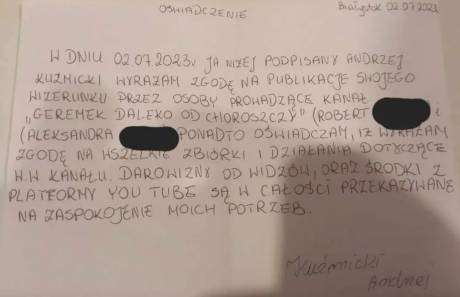 OŚWIADCZENIE
Białystok 02.07.2023
W DNIU 02.07.2023r JA NIŻEJ PODPISANY ANDRZEJ
KUŹMICKI WYRAŻAM ZGODĘ NA PUBLIKACJE SWOJEGO
WIZERUNKU PRZEZ OSOBY PROWADZĄCE KANAŁ
„GEREMEK DALEKO OD CHOROSZCZY" (ROBERT i
(ALEKSANDRA PONADTO OŚWIADCZAM, IŻ WYRAŻAM
ZGODĘ NA WSZELKIE ZBIÓRKI I DZIAŁANIA DOTYCZĄCE
W.W KANAŁU. DAROWIZNY OD WIDZÓW, ORAZ ŚRODKI Z
PLATFORMY YOU TUBE SĄ W CAŁOŚCI PRZEKAZYWANE
NA ZASPOKOJENIE MOICH POTRZEB.
Kuźmicki
Andrzej